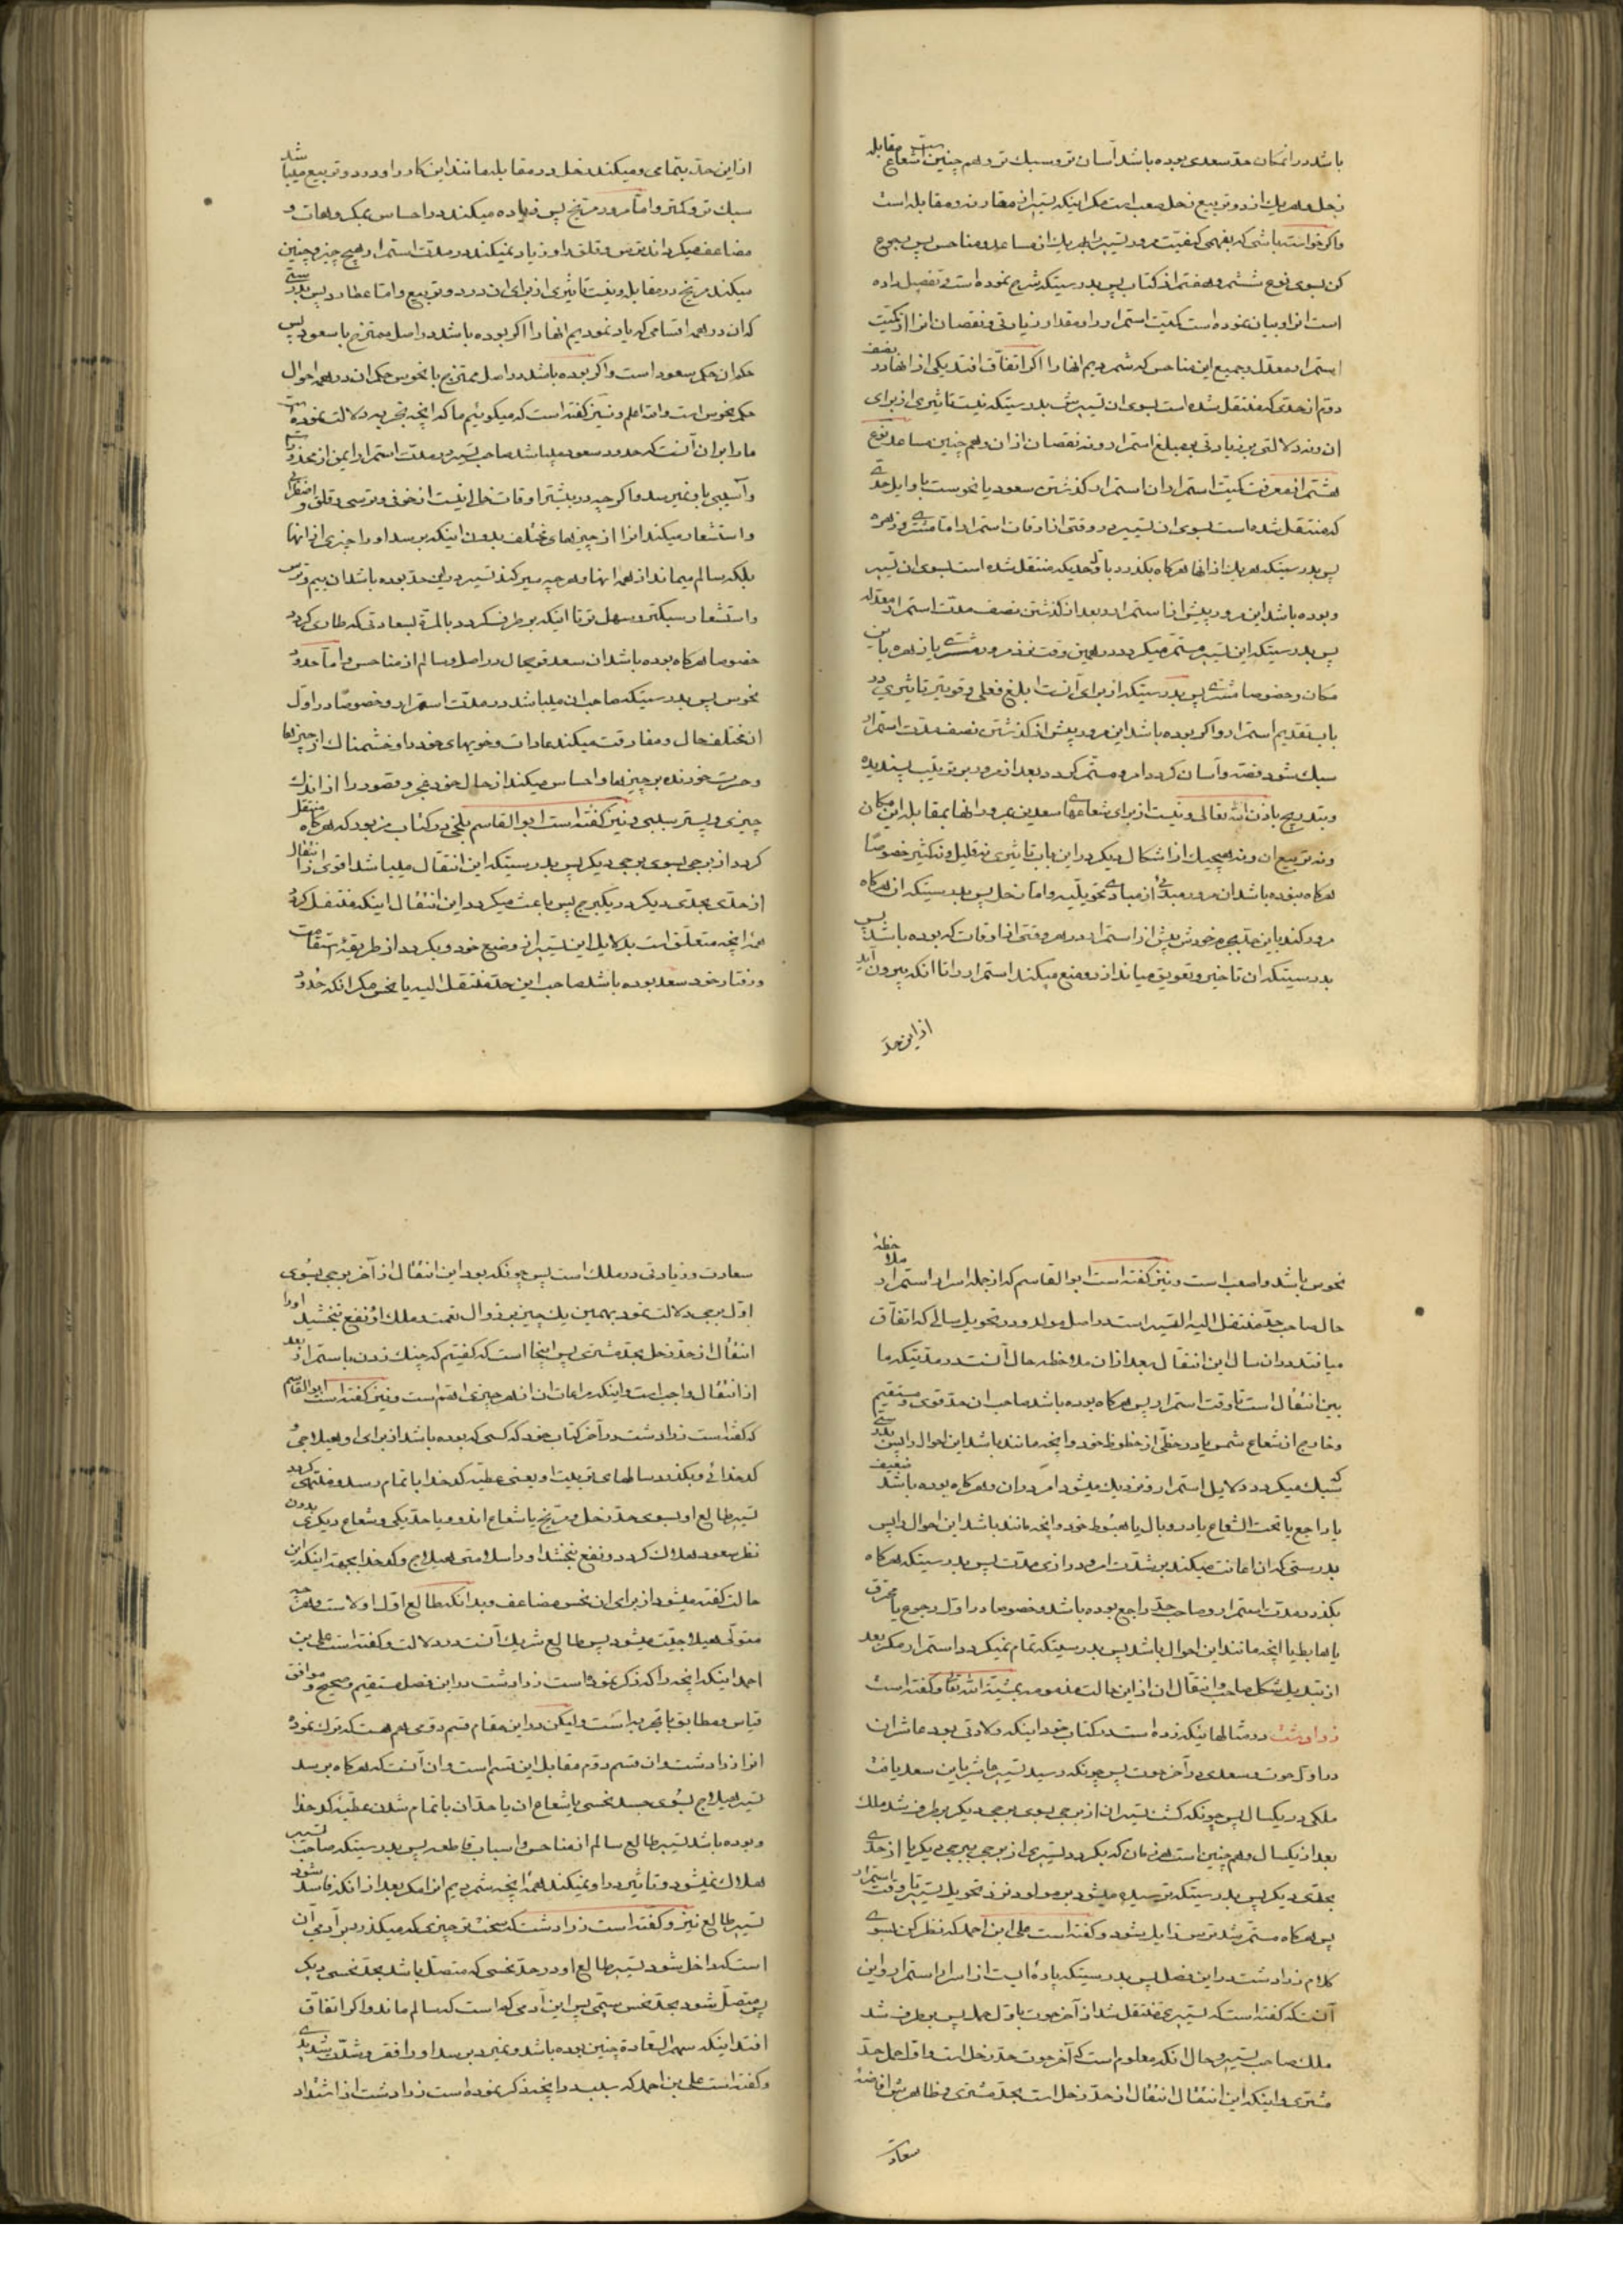 باشد در انمکان حد سعدی بوده باشد آسان تر و سبک تر و هم چنین است شعاع مقابله
زحل و هر یک از دو تربیع زحل صعب است مکر اینکه تسییر از مقارنه و مقابله است
واکر خواسته باشی که بفهمی کیفیت مرور تسییر را بهر یک از مساعد و مناحس پس رجوع
کن بسوی نوع ششم و هفتم از کتاب پس بدرستیکه شرح نموده است و تفصیل داده
است انرا و بیان نموده است کمیت استمرار را و مقدار زیادتی و نقصان انرا از کمیت
استمرار معدل و جمیع این مناحس که شمردیم انها را اکر اتفاق افتد یکی از انها در نصف
دوم از حدی که منتقل شده است بسوی ان تسییر پس بدرستیکه نیست تاثیری از برای
ان و نه دلالتی بر زیادتی بر مبلغ استمرار و نه نقصان از ان و هم چنین مساعد نوع
هشتم از معرفت کمیت استمرار ان استمرار کذشتن سعود یا نحوست باوایل حدی
که منتقل شده است بسوی ان تسییر در وقتی از اوقات استمرار اما مشتری و زهره
پس بدرستیکه هر یک از انها هرکاه بکذرد باول حدیکه منتقل شده است بسوی ان تسییر
و بوده باشد این مرور پیش از استمرار و بعد از کذشتن نصف مدت استمرار معدله
پس بدرستیکه این تسییر مستمر میکردد در همین وقت نزد مرور مشتری یا زهره باین
مکان و خصوصا مشتری پس بدرستیکه از برای آنست ابلغ فعلی و قویتر تاثیری در
باب تقدیم استمرار و اکر بوده باشد این مرور پیش از کذشتن نصف مدت استمرار
سبک شود قصه و آسان کردد امر و مستمر کردد بعد از مرور بر ترتیب پسندیده
و بتدریج باذن الله تعالی و نیست از برای شعاعهای سعدین بمرور انها بمقابله این مکان
و نه تربیع ان و نه بهیچیک از اشکال دیکر در این باب تاثیری نه قلیل و نه کثیر خصوصا
هرکاه نبوده باشد ان مرور مبدئی از مبادی تحویلیه و اما زحل پس بدرستیکه ان هرکاه
مرور کند باین حد بجرم خودش پیش از استمرار در هر وقتی از اوقات که بوده باشد پس
بدرستیکه ان تاخیر و تعویق میاندازد و منع میکند استمرار را تا آنکه بیرون آید
از این حد
از این حد بتمامی و میکند زحل در مقابله مانند این کار را و در دو تربیع میباشد
سبک تر و کمتر و اما مرور مریخ پس زیاده میکند در احساس بمکروهات و
مضاعف میکرداند ترس و قلق را و زیاد نمیکند در مدت استمرار هیچ چیز و چنین
میکند مریخ در مقابله و نیست تاثیری از برای ان در دو تربیع و اما عطارد پس بدرستی
که ان در همه اقسامی که یاد نمودیم انها را اکر بوده باشد در اصل ممتزج با سعود پس
حکم ان حکم سعود است و اکر بوده باشد در اصل ممتزج با نحوس حکم ان در همه احوال
حکم نحوس است والله اعلم و نیز کفته است که میکوئیم ما که انچه تجربه دلالت نموده است
ما را بر ان آنست که حدود سعود میباشد صاحب تسییر در مدت استمرار ایمن از محذورات
و آسیبی باو نمیرسد و اکر چه در بیشتر اوقات خالی نیست از خوفی و ترسی و قلق و اضطرابی
و استشعار میکند انرا از چیزهای مختلف بدون اینکه برسد او را چیزی از انها
بلکه سالم میماند از همه انها و هر چه سیر کند تسییر در این حد بوده باشد ان بیم و ترس
و استشعار سبکتر و سهل تر تا اینکه برطرف کردد بالمرة بسعادتی که طاری کردد
خصوصا هرکاه بوده باشد ان سعد قویحال در اصل و سالم از مناحس و اما حدود
نحوس پس بدرستیکه صاحب ان میباشد در مدت استمرار و خصوصا در اول
ان مختلف حال و مفارقت میکند عادات و خویهای خود را و خشمناک از چیزها
و حسرت خورنده بر چیزها و احساس میکند از حال خود عجز و قصور را از اندک
چیزی و پستر سببی و نیز کفته است ابو القاسم بلخی در کتاب مزبور که هرکاه منتقل
کردد از برجی بسوی برجی دیکر پس بدرستیکه این انتقال میباشد اقوی از انتقال
از حدی بحدی دیکر در یکبرج پس باعث میکردد این انتقال اینکه منتقل کردد
همه انچه متعلق است بدلایل این تسییر از وضع خود و بکردد از طریقه استقامت
و رفتار خود سعد بوده باشد صاحب این حد منتقل الیه یا نحس مکر انکه حدود
نحوس باشد و اصعب است و نیز کفته است ابو القاسم که از جمله اسرار استمرار ملاحظه
حال صاحب حد منتقل الیه القسمه است در اصل مولد و در تحویل سالی که اتفاق
میافتد در ان سال این انتقال بعد از ان ملاحظه حال آنست در مدتیکه ما
بین انتقال است تا وقت استمرار پس هرکاه بوده باشد صاحب ان حد قوی و مستقیم
و خارج از شعاع شمس یا در حظی از حظوظ خود و انچه مانند باشد این احوال را پس بدرستی
که سبک میکردد دلایل استمرار و نزدیک میشود امر در ان و هرکاه بوده باشد ضعیف
یا راجع یا تحت الشعاع یا در وبال یا هبوط خود و انچه مانند باشد این احوال را پس
بدرستی که ان اعانت میکند بر شدت امر و درازی مدت پس بدرستیکه هرکاه
بکذرد مدت استمرار و صاحب حد راجع بوده باشد و خصوصا در اول رجوع یا محترق
یا هابط یا انچه مانند این احوال باشد پس بدرستیکه تمام نمیکردد استمرار مکر بعد
از تبدیل شکل صاحب و انتقال ان از این حالت مذمومه بمشیة الله تعا و کفته است
زرادوشت در مثالهائیکه زده است در کتاب خود اینکه ولادتی بود عاشر ان
در اول حوت و سعدی در آخر حوت پس چونکه رسید تسییر عاشر باین سعد یافت
ملکی در یکسال پس چونکه کشت تسییر ان از برجی بسوی برجی دیکر برطرف شد ملک
بعد از یکسال و هم چنین است هر زمان که بکردد تسییری از برجی ببرجی دیکر یا از حدی
بحدی دیکر پس بدرستیکه ترسیده میشود بر مولود نزد تحویل تسییر تا وقت استمرار
پس هرکاه مستمر شد ترس زایل بشود و کفته است علی ابن احمد که نظر کن بسوی
کلام زرادشت در این فصل پس بدرستیکه پارهٔ ایست از اسرار استمرار و این
آنست که کفته است که تسییری منتقل شد از آخر حوت باول حمل پس برطرف شد
ملک صاحب تسییر و حال انکه معلوم است که آخر حوت حد زحل است و اول حمل حد
مشتری و اینکه این انتقال انتقال از حد زحل است بحد مشتری و ظاهرش افاضهٔ
سعادت
سعادت و زیادتی در ملک است پس چونکه بود این انتقال از آخر برجی بسوی
اول برجی دلالت نمود بهمین یک چیز بر زوال نعمت و ملک او و نفع نبخشید او را
انتقال از حد زحل بحد مشتری پس اینجا است که کفتیم که چنک زدن باستمرار بعد
از انتقال واجب است و اینکه مراعات ان از هر چیزی اهم است و نیز کفته است ابو القاسم
که کفته است زرادشت در آخر کتاب خود که کسی که بوده باشد از برای او هیلاجی و
کدخدائی و بکذرد سالهای تربیت او یعنی عطیه کدخدا باتمام رسد و منتهی کردد
تسییر طالع او بسوی حد زحل و مریخ یا شعاع اندو و یا حد یکی و شعاع دیکری بدون
نظر سعود هلاک کردد و نفع نبخشد او را سلامتی هیلاج و کدخدا بجهة اینکه این
حالت کفته میشود از برای ان نحس مضاعف و بدانکه طالع اقل اولاست و هر چه
متولی هیلاجیت میشود پس طالع شریک آنست در دلالت و کفته است علی بن
احمد اینکه انچه را که ذکر نموده است زرادشت در این فصل مستقیم و صحیح و موافق
قیاس و مطابق با تجربه است و لیکن در این مقام قسم دومی هم هست که ترک نموده
انرا زرادشت و ان قسم دوم مقابل این قسم است و ان آنست که هرکاه برسد
تسییر هیلاج بسوی جسد نحسی یا شعاع ان یا حد ان باتمام شدن عطیه کدخدا
و بوده باشد تسییر طالع سالم از مناحس و اسباب قاطعه پس بدرستیکه صاحب تسییر
هلاک نمیشود و تاثیر در او نمیکند همه انچه شمردیم انرا مکر بعد از انکه فاسد شود
تسییر طالع نیز و کفته است زرادشت که سخت تر چیزی که میکذرد بر آدمی آن
است که داخل شود تسییر طالع او در حد نحسی که متصل باشد بحد نحسی دیکر
پس متصل شود بحد نحس سیمی پس این آدمی کم است که سالم ماند و اکر اتفاق
افتد اینکه سهم السعادة چنین بوده باشد و نمیرد برسد او را فقر و شدت شدیدی
و کفته است علی بن احمد که ببلید و انچه ذکر نموده است زرادشت از اشتداد